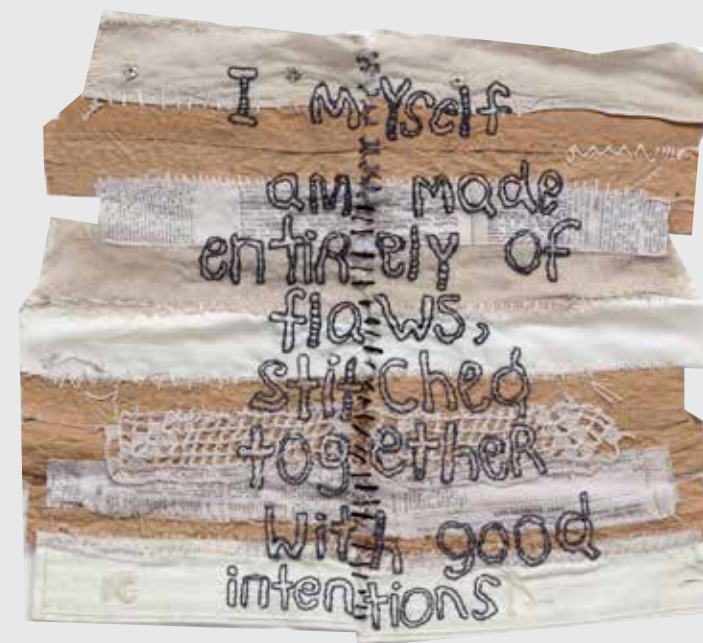 I myself
am made
entirely of
flaws,
stitched
together
with good
intentions